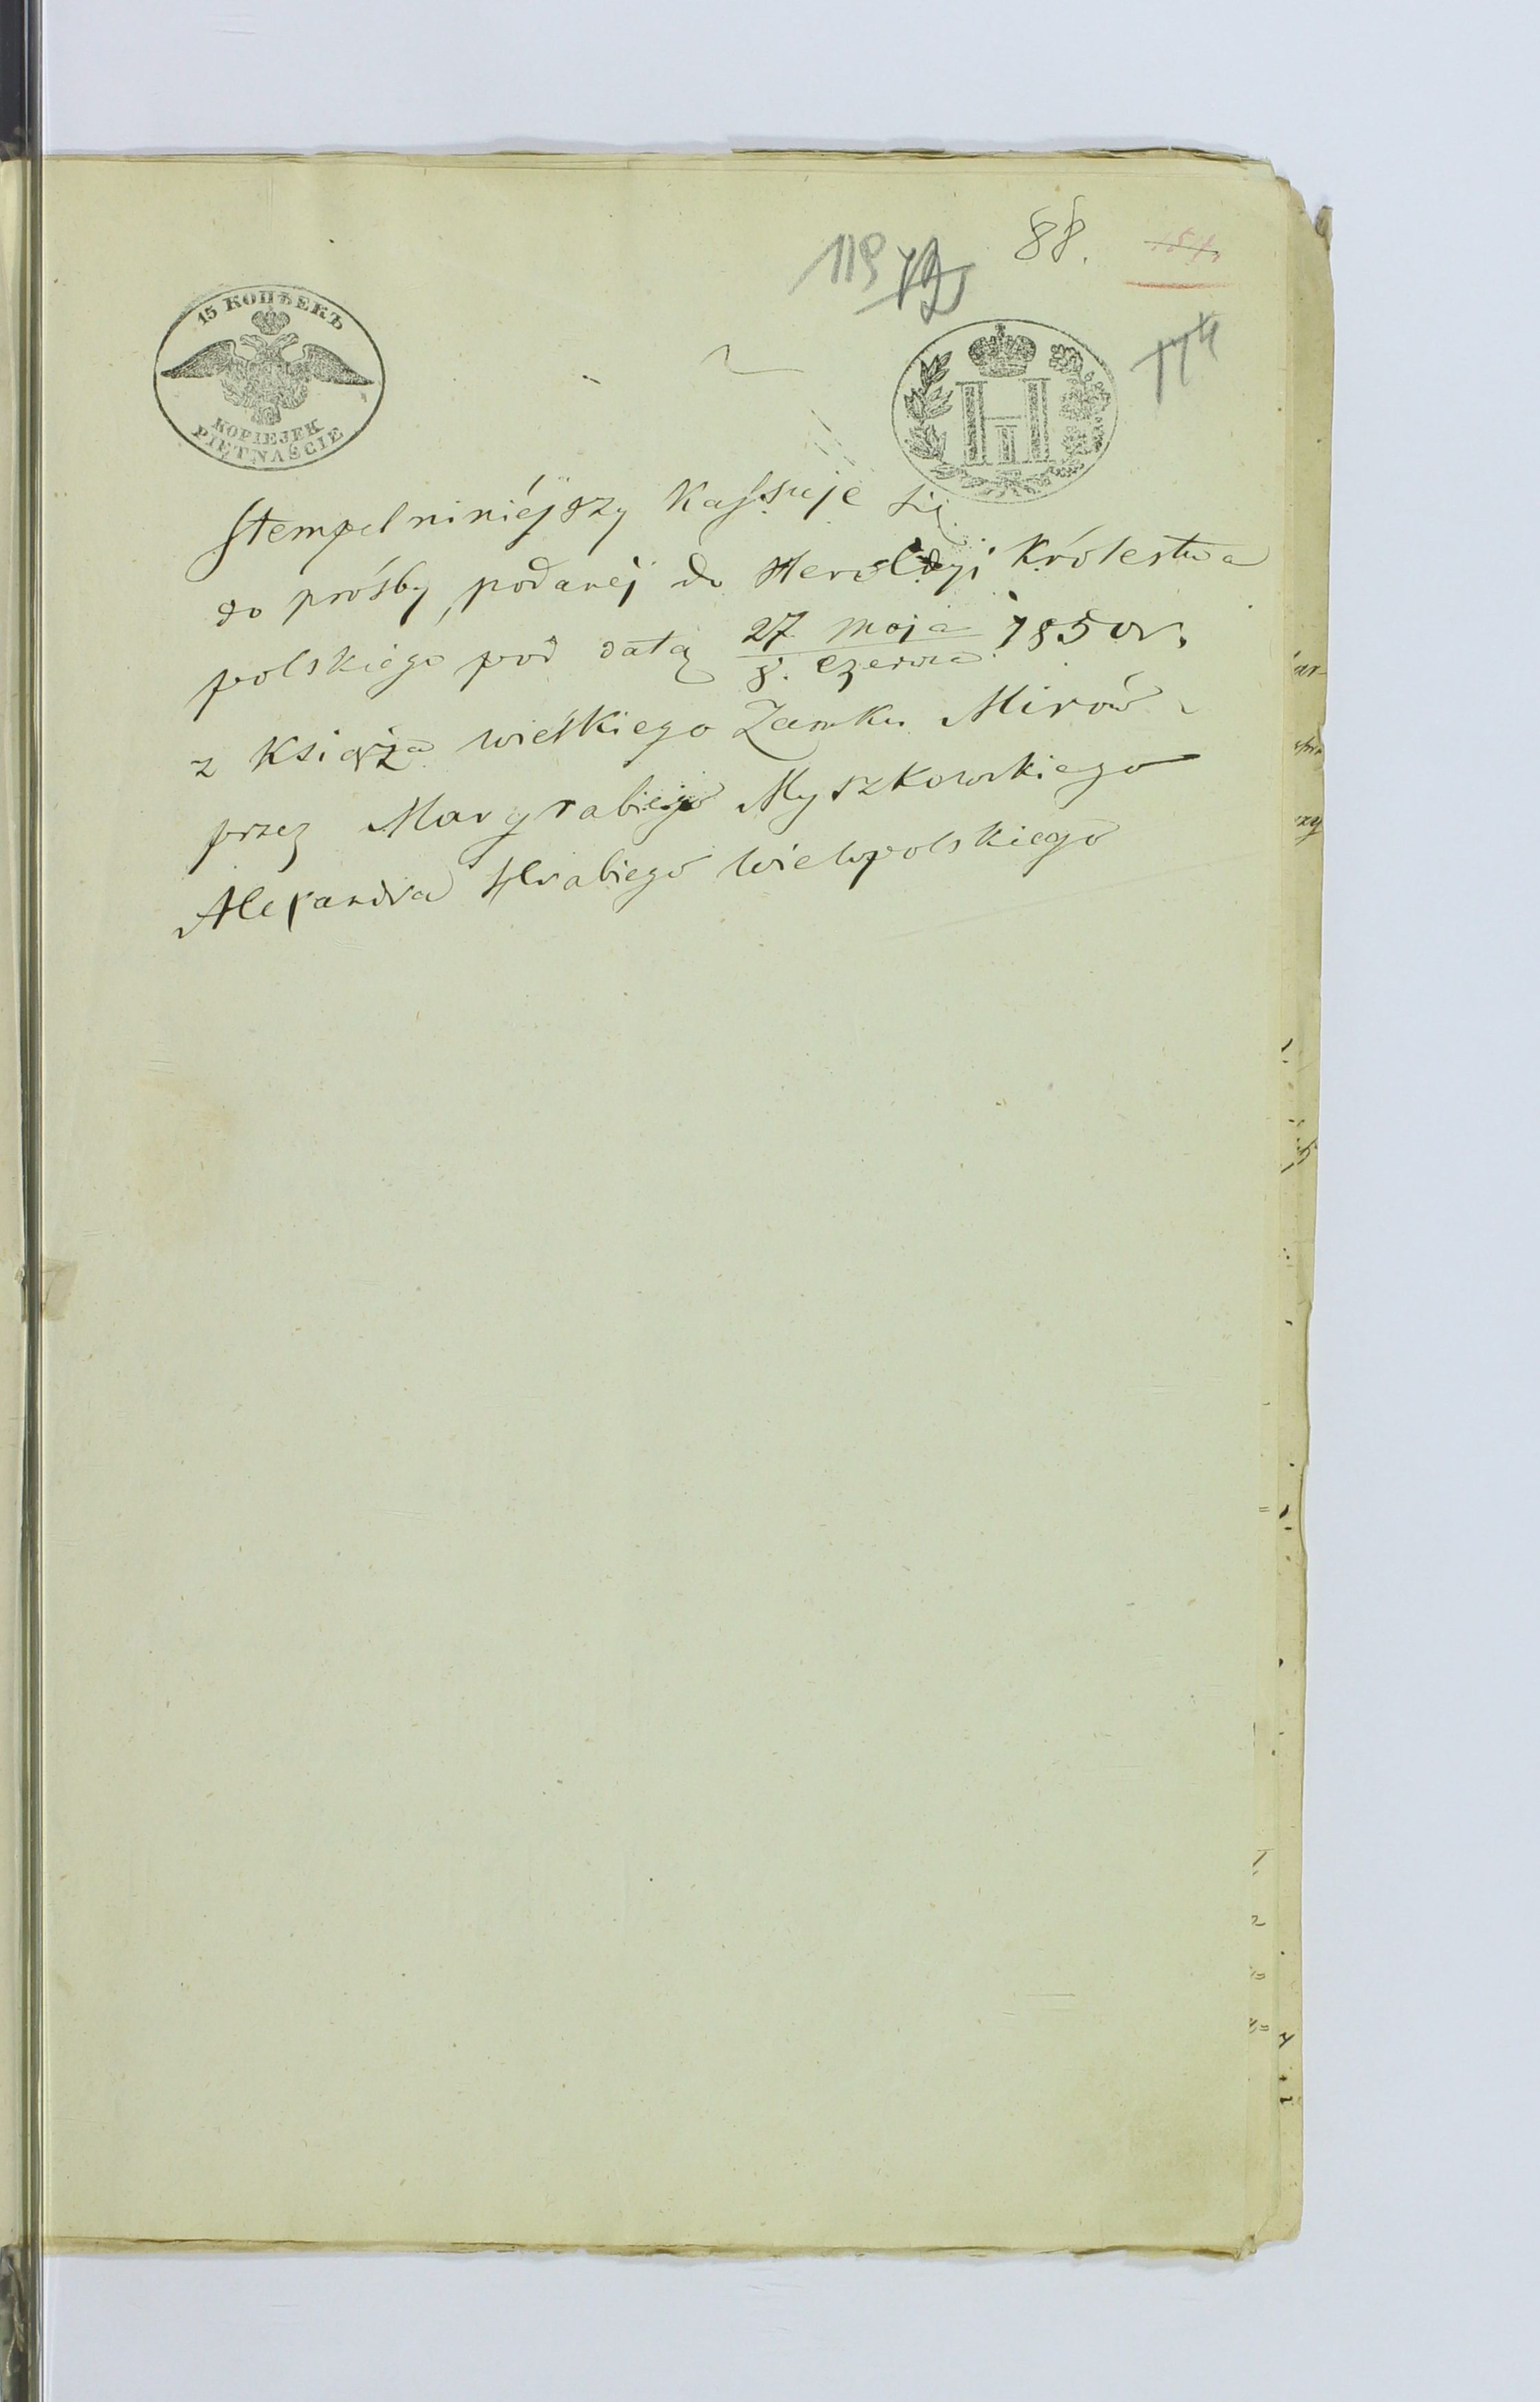 119 88.
174
15 КОПѢЕКЪ
KOPIEJEK
PIĘTNAŚCIE
H II
Stempel niniéjszy Kassuje się
do prośby podanéj do Heroldyi Królestwa
polskiego pod datą 27 maja / 8. czerwca 1850 r.
z Książa wielkiego Zamku Mirów
przez Margrabiego Myszkowskiego
Alexandra Hrabiego Wielopolskiego